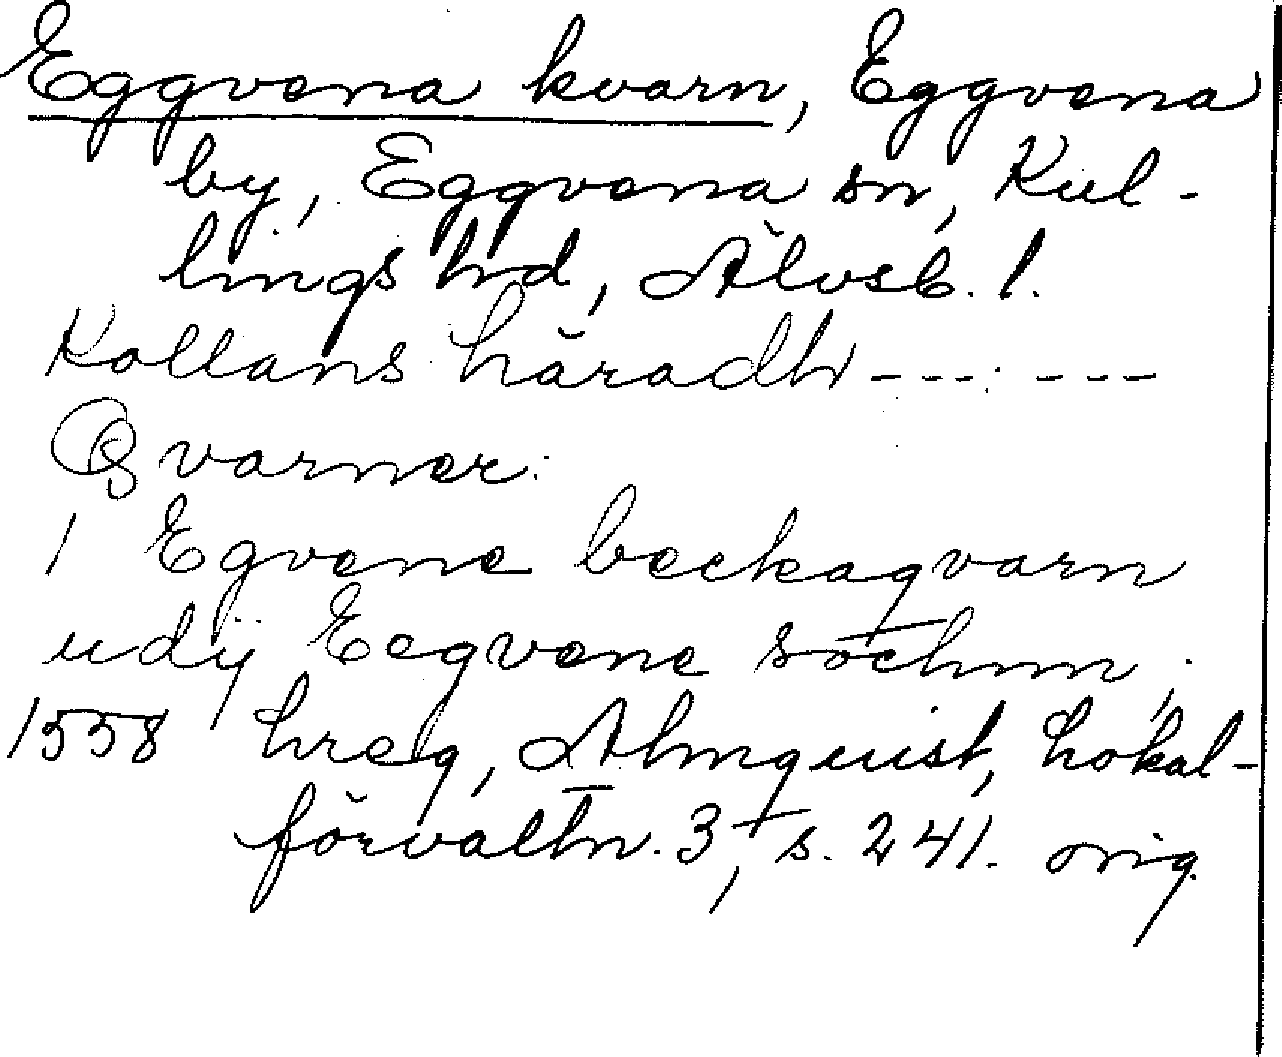 Eggvena kvarn, Eggvena
by, Eggvena sn, Kul-
lings hd, Älvsb. l.
Kollans häradh --- : ---
Qvarner:
1 Egvene beckaqvarn
udÿ Eegvene sochnn;
1558 hreg, Almquist, Lokal-
förvaltn. 3, s. 241. orig.